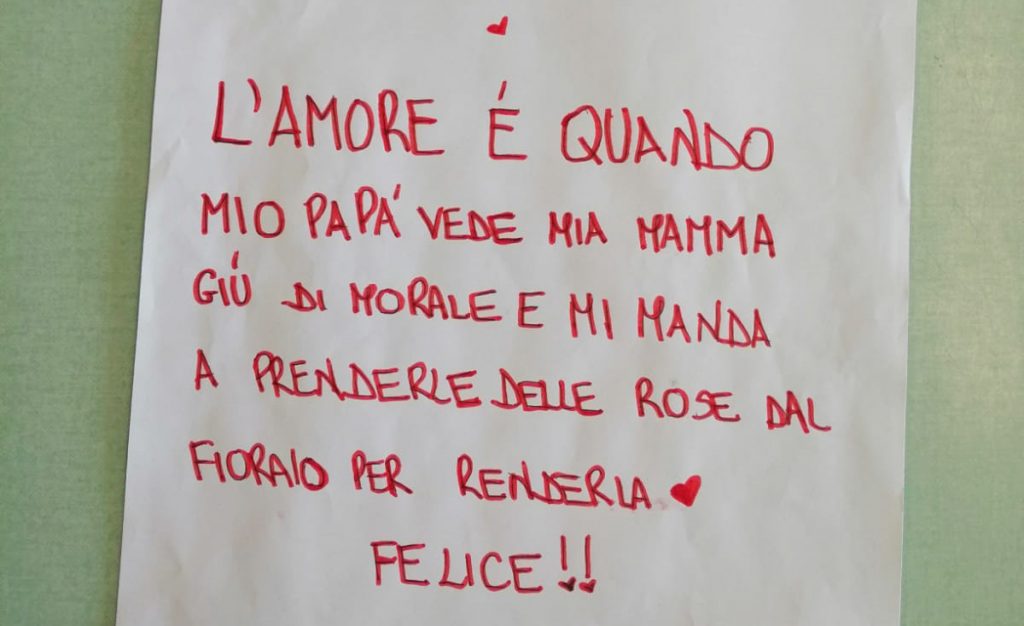 L'AMORE É QUANDO
MIO PAPÁ VEDE MIA MAMMA
GIÚ DI MORALE E MI MANDA
A PRENDERLE DELLE ROSE DAL
FIORAIO PER RENDERLA
FELICE!!